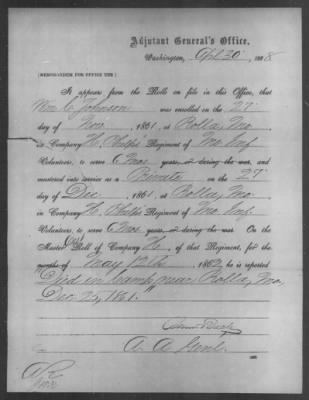 Adjutant General's Office,
Washington, Apl 30', 1868
[MEMORANDUM FOR OFFICE USE.]
It appears from the Rolls on file in this Office, that
Wm C. Johnson was enrolled on the 27'
day of Nov, 1861 at Rolla, Mo
in Company H, Phelps' Regiment of Mo Inf
Volunteers, to serve 6 Mos years, or during the war, and
mustered into service as a Private on the 27'
day of Dec, 1861, at Rolla, Mo,
in Company H, Phelps Regiment of Mo Inf.
Volunteers, to serve 6 Mos years, or during the war. On the
Muster Out Roll of Company H, of that Regiment, for the
months of May 12th, 1862, he is reported
"Died in Camp, near Rolla, Mo,
Dec 25, 1861.
A. A. Genl.